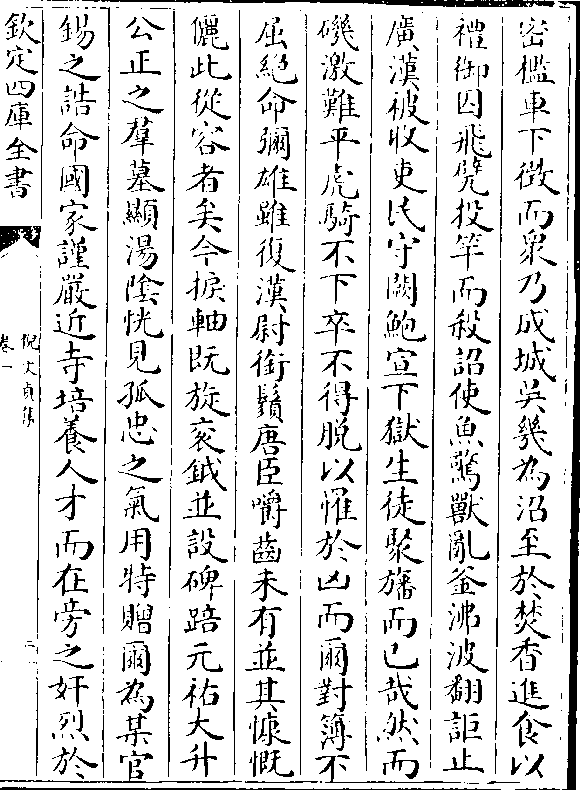 密檻車下徴而衆乃成城吳幾為沼至於焚香進食以
禮御囚飛凳投竿而殺詔使魚驚獸亂釜沸波翻詎止
廣漢被收吏民守闕鮑宣下獄生徒聚旛而已哉然而
磯激難平虎騎不下卒不得脱以罹於凶而爾對簿不
屈絶命彌雄雖復漢尉銜鬚唐臣嚼齒未有並其慷慨
儷此從容者矣今捩軸既旋衮鉞並設碑踣元祐大升
公正之羣墓顯湯隂恍見孤忠之氣用特贈爾為某官
錫之誥命國家謹嚴近寺培養人才而在旁之奸烈於
欽定四庫全書
倪文貞集
卷一